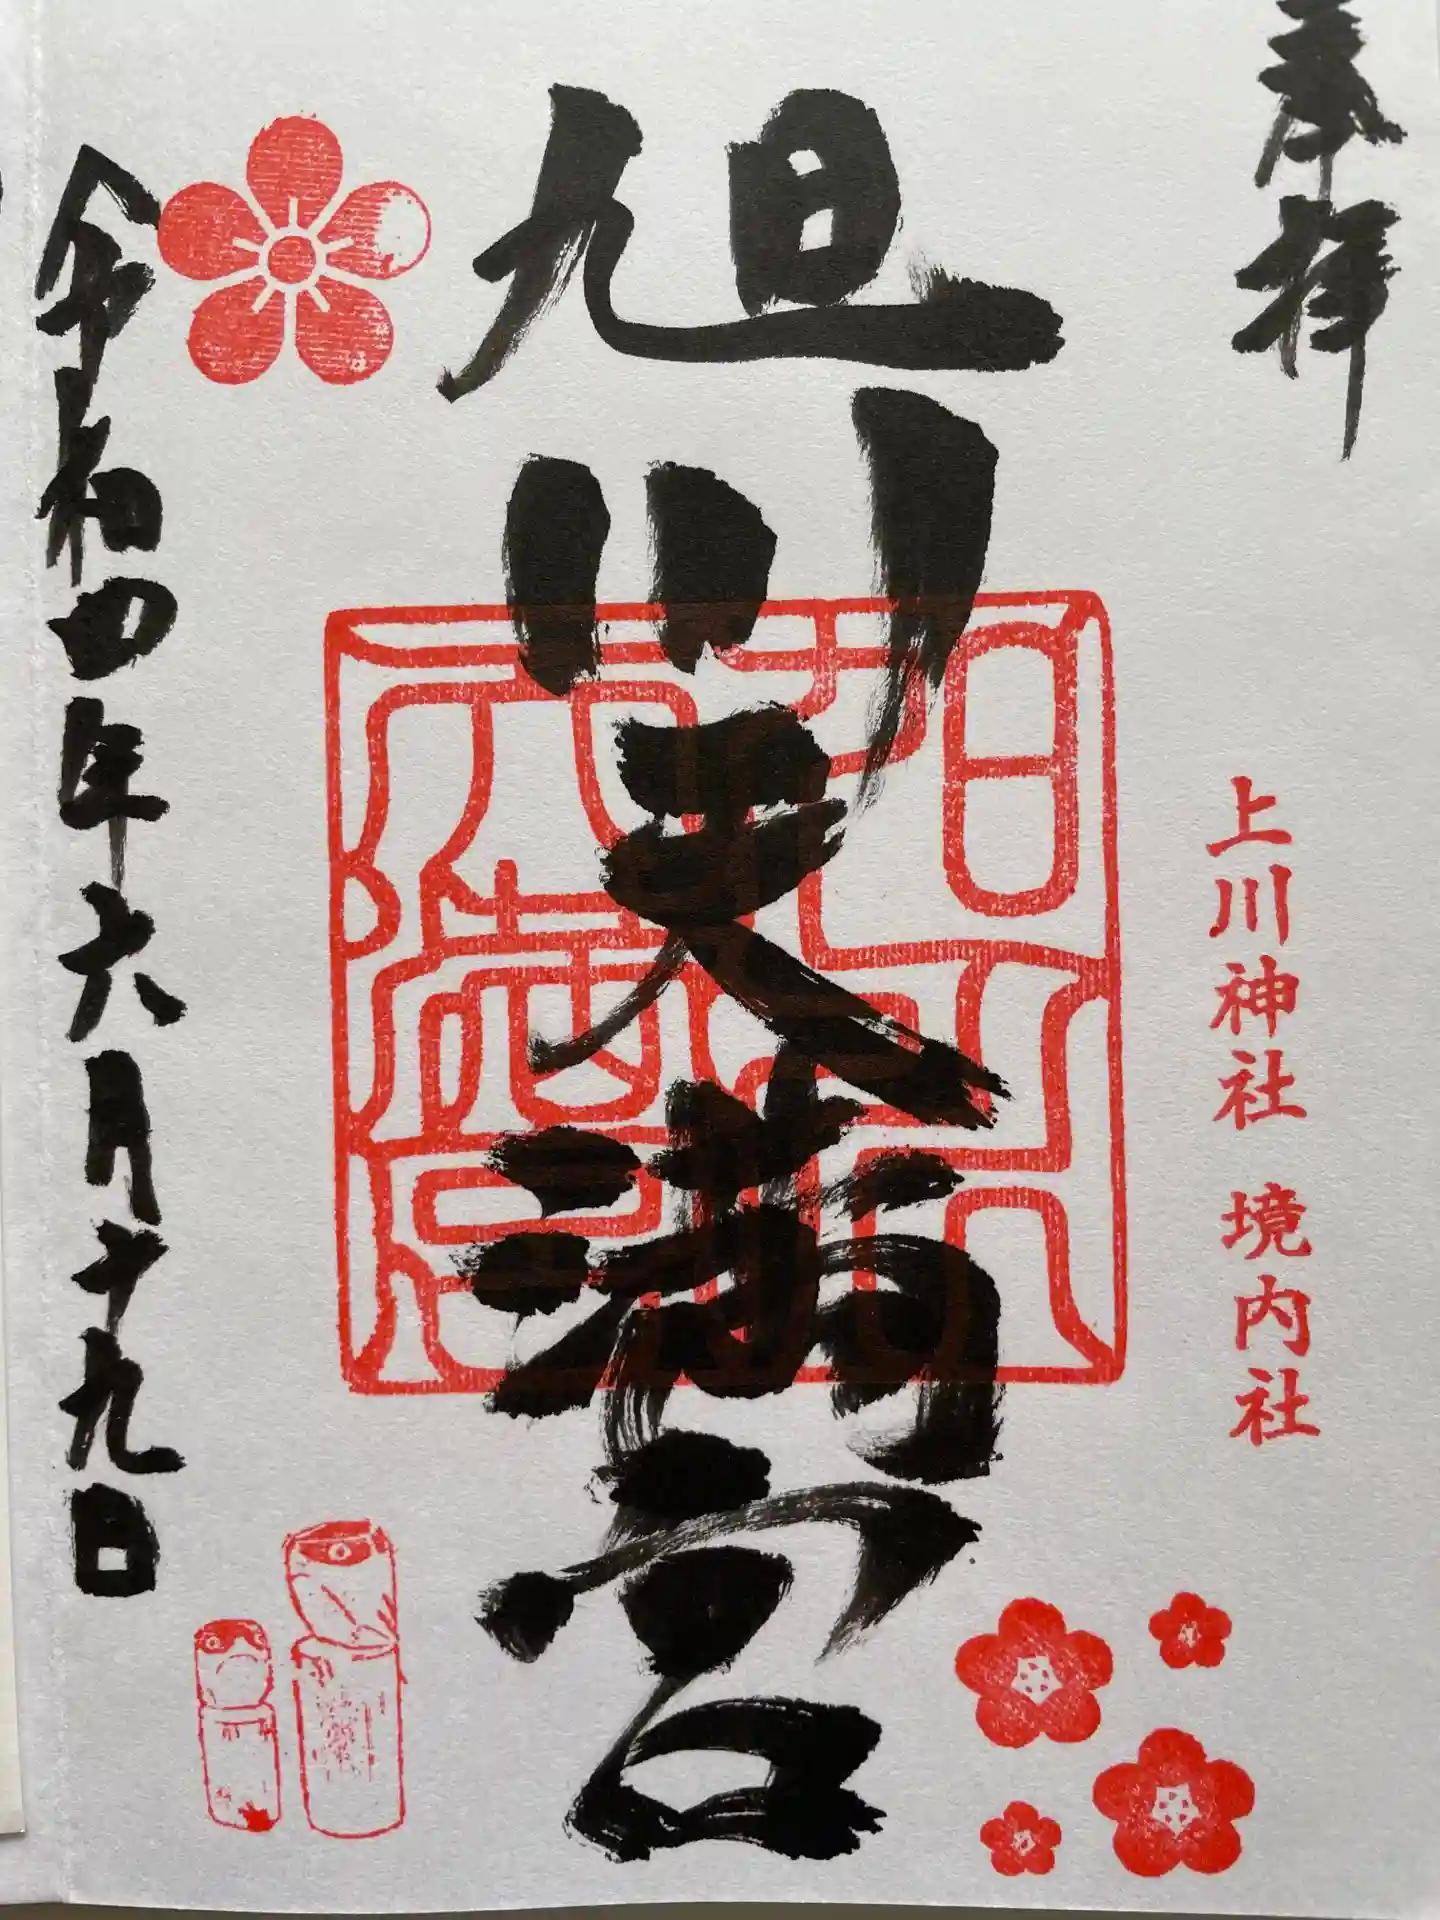 奉拝
上川神社 境内社
旭川天満宮
令和四年六月十九日